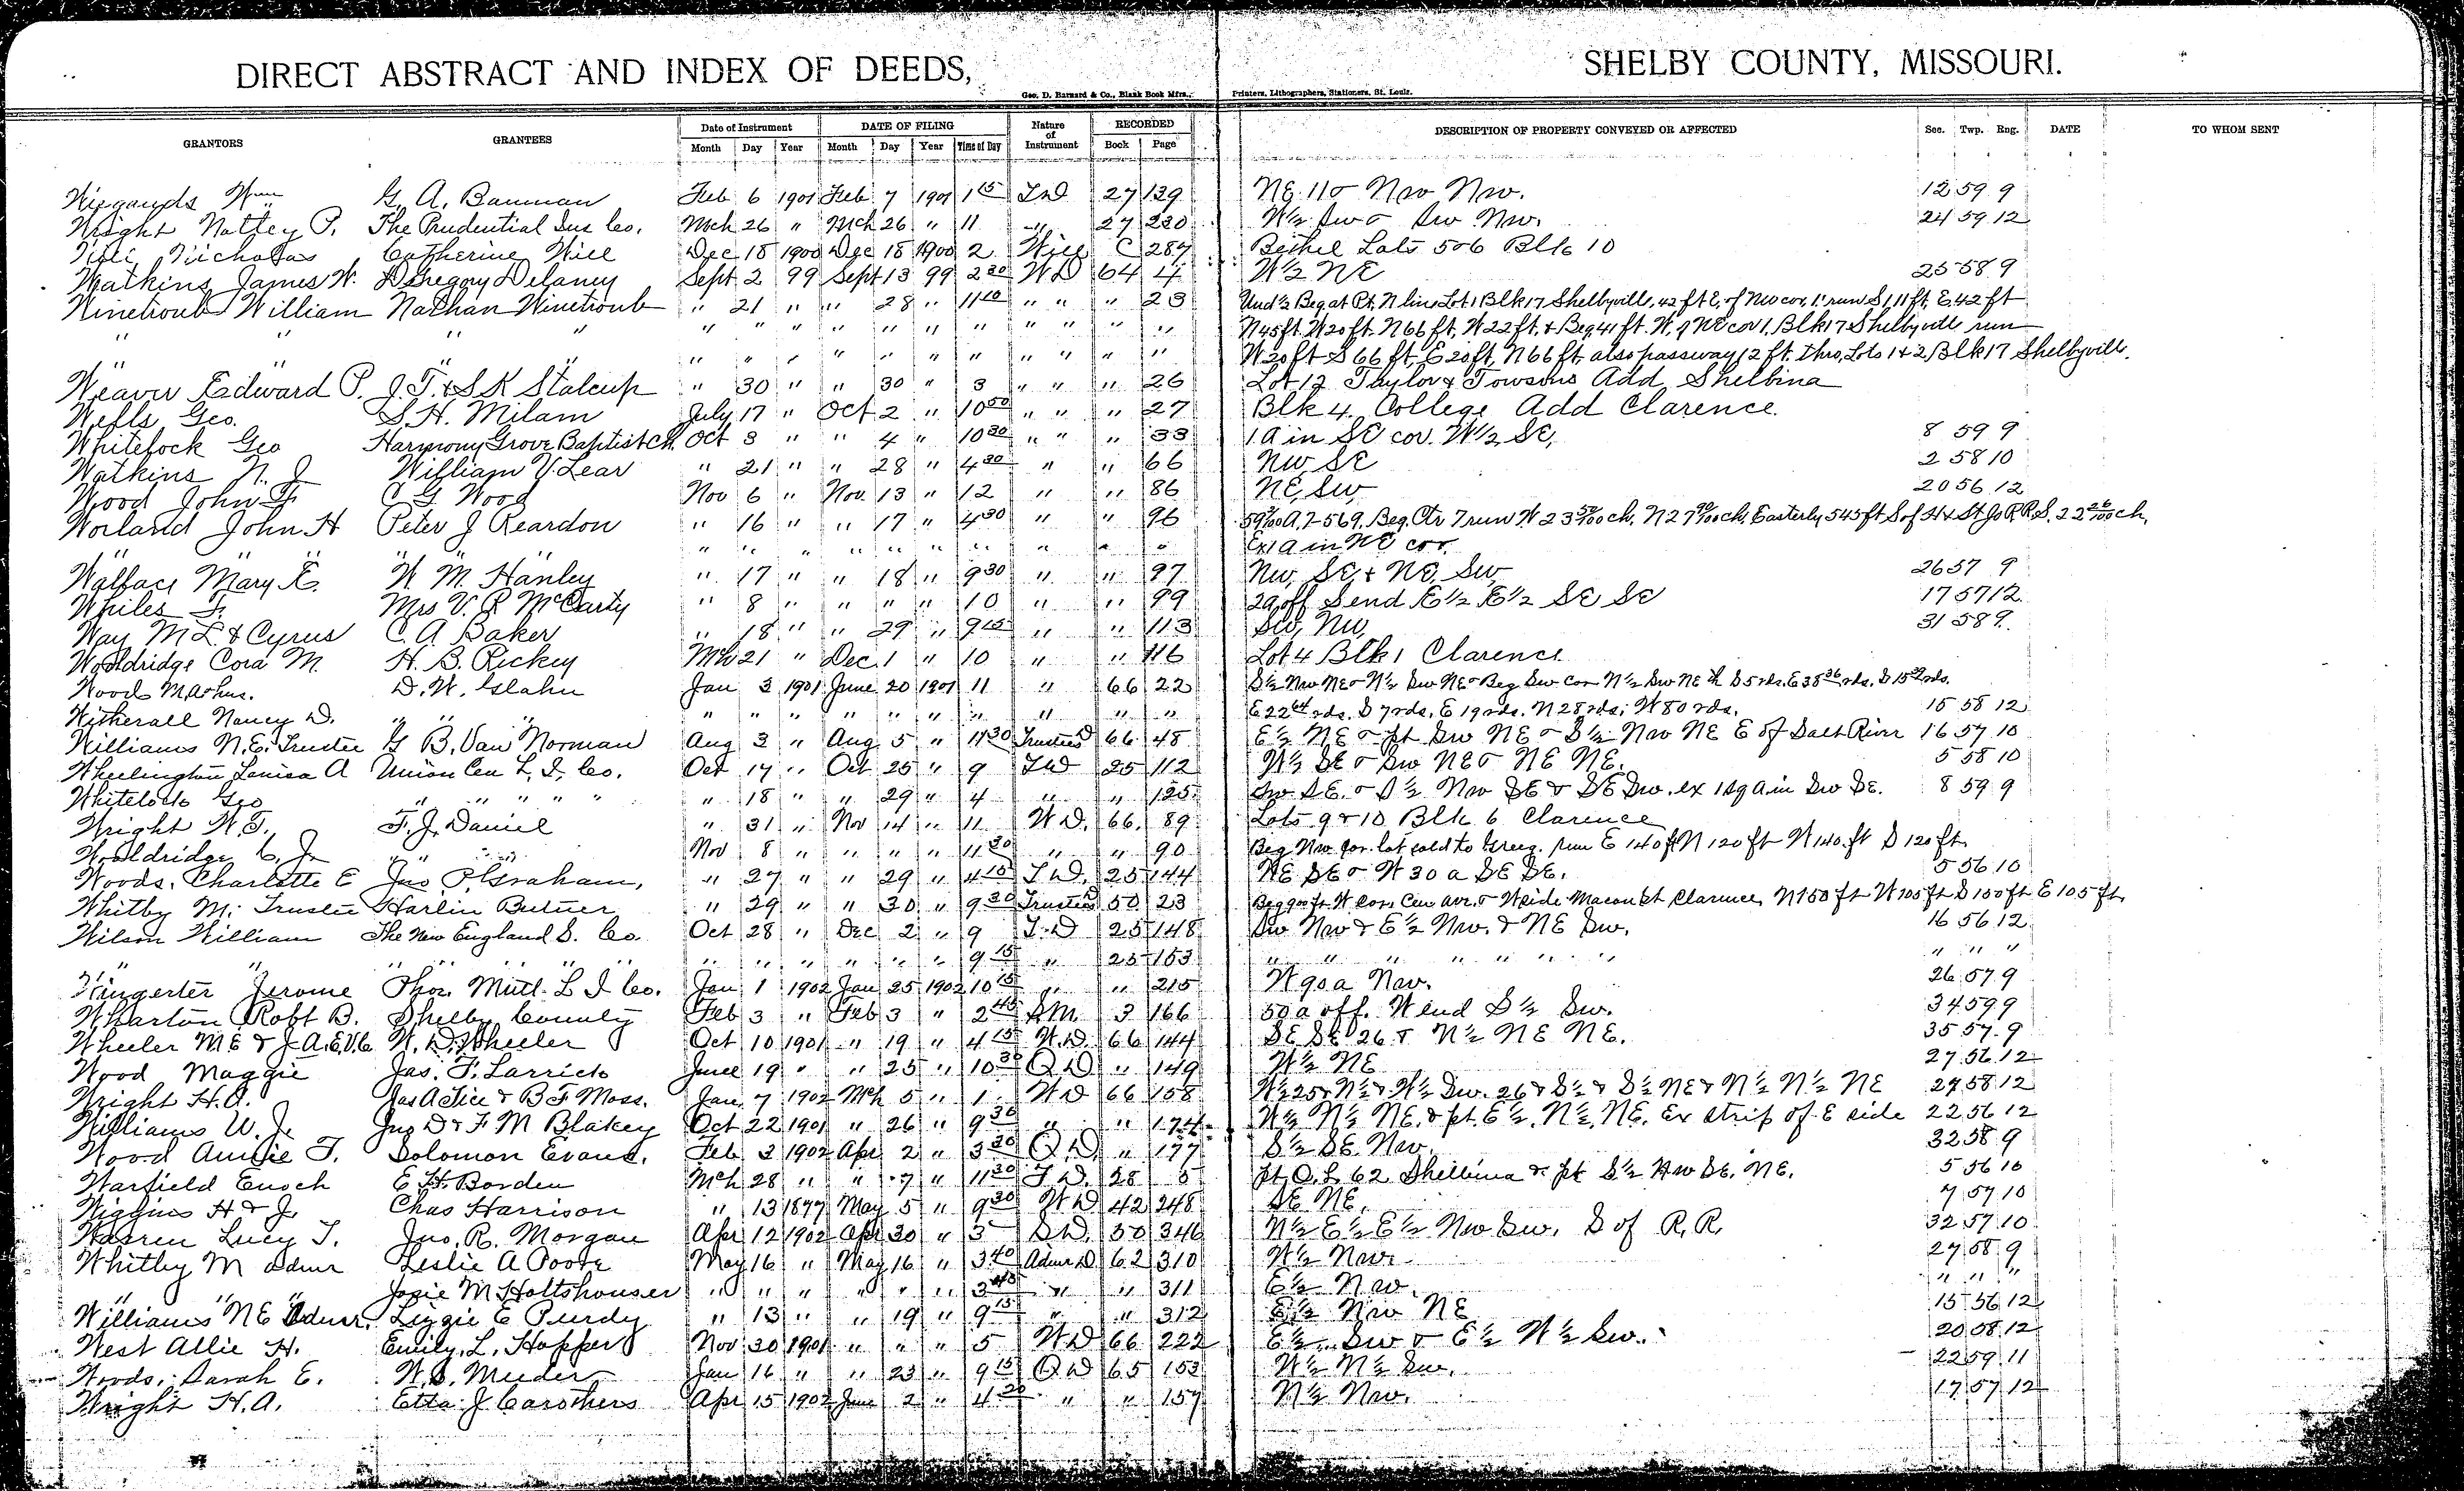 DIRECT ABSTRACT AND INDEX OF DEEDS, SHELBY COUNTY, MISSOURI.
Geo. D. Barnard & Co., Blank Book Mfrs., Printers, Lithographers, Stationers, St. Louis.
GRANTORS GRANTEES Date of Instrument DATE OF FILING Nature of Instrument RECORDED DESCRIPTION OF PROPERTY CONVEYED OR AFFECTED Sec. Twp. Rng. DATE TO WHOM SENT
Month Day Year Month Day Year Time of Day Book Page
Wm G. A. Bauman Feb 6 1901 Feb 7 1901 1 15 27 139 NE Nw Nw. 12 59 9
Wright Nattey P. The Prudential Ins Co. Mch 26 " Mch 26 " 11 " 27 230 W½ Sw & Sw Nw. 24 59 12
Will Nicholas Catherine Will Dec 18 1900 Dec 18 1900 2 Will C 287 Bethel Lots 5 & 6 Blk 10
Watkins James W. Gregory Delaney Sept 2 99 Sept 13 99 2 30 WD 64 4 W½ NE 25 58 9
Winetroub William Nathan Winetroub " 21 " " 28 " 11 10 " " " 23 Und ½ Beg at Pt. N line Lot 1 Blk 17 Shelbyville, 42 ft E. of Nw cor, 1. run S 111 ft, E 42 ft
" " " " " " " " " " " " " " " N 45 ft. W 20 ft. N 66 ft, W 22 ft, & Beg 41 ft. W. of NE cor 1, Blk 17 Shelbyville run
" " " " " " " " " " " W 20 ft S 66 ft, E 20 ft, N 66 ft, also passway 12 ft. thro, Lots 1 & 2 Blk 17 Shelbyville.
Weaver Edward P. J. T. & S K Stalcup " 30 " " 30 " 3 " " " 26 Lot 12 Taylor & Towsons Add Shelbina
Wells Geo. S. H. Milam July 17 " Oct 2 " 10 50 " " " 27 Blk 4 College Add Clarence.
Whitelock Geo Harmony Grove Baptist Ch. Oct 3 " " 4 " 10 30 " " " 33 1 a in SE cor. W½ SE, 8 59 9
Watkins N. J William V. Lear " 21 " " 28 " 4 30 " " 66 NW, SE 2 58 10
Wood John F C G Wood Nov 6 " Nov. 13 " 12 " " 86 NE, SW 20 56 12
Worland John H Peter J Reardon " 16 " " 17 " 4 30 " " 96 Beg. Ctr 7 run W 23 ch, N 27 ch, Easterly 545 ft S of H & St Jo R R S. 22 ch,
" " " " " " " " " " " " Ex 1 a in NE cor.
Wallace Mary E. W M. Hanley " 17 " " 18 " 9 30 " " 97 NW, SE, & NE, SW 26 57 9
Whiles F. Mrs V. P McCarty " 8 " " " " 10 " " 99 2a off S end E½ E½ SE SE 17 57 12
Way M L & Cyrus C. A Baker " 18 " " 29 " 9 15 " " 113 SW, NW, 31 58 9
Wooldridge Cora M. H. B. Rickey Mh 21 " Dec. 1 " 10 " " 116 Lot 4 Blk 1 Clarence
Wood M. D. W. Glahn Jan 3 1901 June 20 1901 11 " 66 22 S½ Nw NE & N½ Sw NE & Beg Sw Cor N½ Sw NE th S 5 rds. E 38 36 rds. S 15 rds.
Witherall Nancy D. " " " " " " " " " " " " E 22 64 rds. S 7 rds, E 19 rds. N 28 rds; W 80 rds. 15 58 12
Williams N. E. Trustee G B. Van Norman Aug 3 " Aug 5 " 11 30 Trustees 66 48 E½ NE & pt Sw NE & S½ Nw NE E of Salt River 16 57 10
Whelington Louisa A Union Cen L. I. Co. Oct 17 " Oct 25 " 9 TD 25 112 W½ SE & Sw NE & NE NE. 5 58 10
Whitelock Geo " " " " " 18 " " 29 " 4 " " 125 Sw SE. & S½ Nw SE & SE Sw. ex 1 sq a in Sw SE. 8 59 9
Wright W. T. F. J. Daniel " 31 " Nov 14 " 11 W D. 66 89 Lots 9 & 10 Blk 6 Clarence
Wooldridge C. J. " " " Nov 8 " " " " 11 30 " " 90 Beg Nw Cor. lot sold to run E 140 ft N 120 ft W 140 ft S 120 ft.
Woods, Charlotte E Jno P. Graham, " 27 " " 29 " 4 15 T D. 25 144 NE SE & W 30 a SE SE. 5 56 10
Whitby M. Trustee Harlin Butner " 29 " " 30 " 9 30 Trustees 50 23 Beg 90 ft W Cor. Cen ave. & W side Macon St Clarence, N 150 ft W 105 ft S 150 ft E 105 ft,
Wilson William The New England S. Co. Oct 28 " Dec 2 " 9 T. D 25 148 Sw Nw & E½ Nw. & NE Sw. 16 56 12
" " " " " " " " " " " " 9 15 " 25 153 " " " " " " " " " "
Wingerter Jerome Mutl. L I Co. Jan 1 1902 Jan 25 1902 10 15 " " 215 W 90 a Nw. 26 57 9
Wharton Robt B. Shelby County Feb 3 " Feb 3 " 2 45 SM. 3 166 50 a off. W end S½ Sw. 34 59 9
Wheeler M E & J A. E. V. C W. D. Wheeler Oct 10 1901 " 19 " 4 15 W. D. 66 144 SE SE 26 & N½ NE NE. 35 57 9
Wood Maggie Jas. F. Larrick June 19 " " 25 " 10 30 Q D " 149 W½ NE 27 56 12
Wright H. A. Jas A Tice & B F Moss. Jan 7 1902 Mch 5 " 1 W D 66 158 W½ 25 & N½ & W½ Sw. 26 & S½ & S½ NE & N½ N½ NE 27 58 12
Williams W. J. Jno D & F M Blakey Oct 22 1901 " 26 " 9 30 " " 174 W½ N½ NE. & pt. E½, N½, NE. Ex strip of E side 22 56 12
Wood T. Solomon Evans. Feb 3 1902 Apr 2 " 3 30 Q D. " 177 S½ SE Nw. 32 58 9
Warfield Enoch E H. Borden Mch 28 " " 7 " 11 30 T D. 28 5 pt O. L 62 Shelbina & pt S½ Nw SE. NE. 5 56 10
Wiggins H & J. Chas Harrison " 13 1877 May 5 " 9 30 W D 42 248 SE NE. 7 57 10
Warren Lucy T. Jno. R. Morgan Apr 12 1902 Apr 30 " 3 SD. 50 346 N½ E½ E½ Nw Sw. S of R. R. 32 57 10
Whitby M admr Leslie A Poore May 16 " May 16 " 3 40 Admr D 62 310 W½ Nw. 27 58 9
" " " Josie M Holtshouser " " " " " " 3 45 " " 311 E½ Nw. " " "
Williams N E Admr. Lizzie E Purdy " 13 " " 19 " 9 15 " " 312 E½ Nw NE 15 56 12
West Allie H. Emily. L. Hopper Nov 30 1901 " " " 5 W D 66 222 E½ Sw & E½ W½ Sw. 20 58 12
Woods, Sarah E. W. S. Jan 16 " " 23 " 9 15 Q D 65 153 W½ N½ Sw. 22 59 11
Wright H. A. Etta J Carothers Apr 15 1902 June 2 " 4 20 " " 157 N½ Nw. 17 57 12